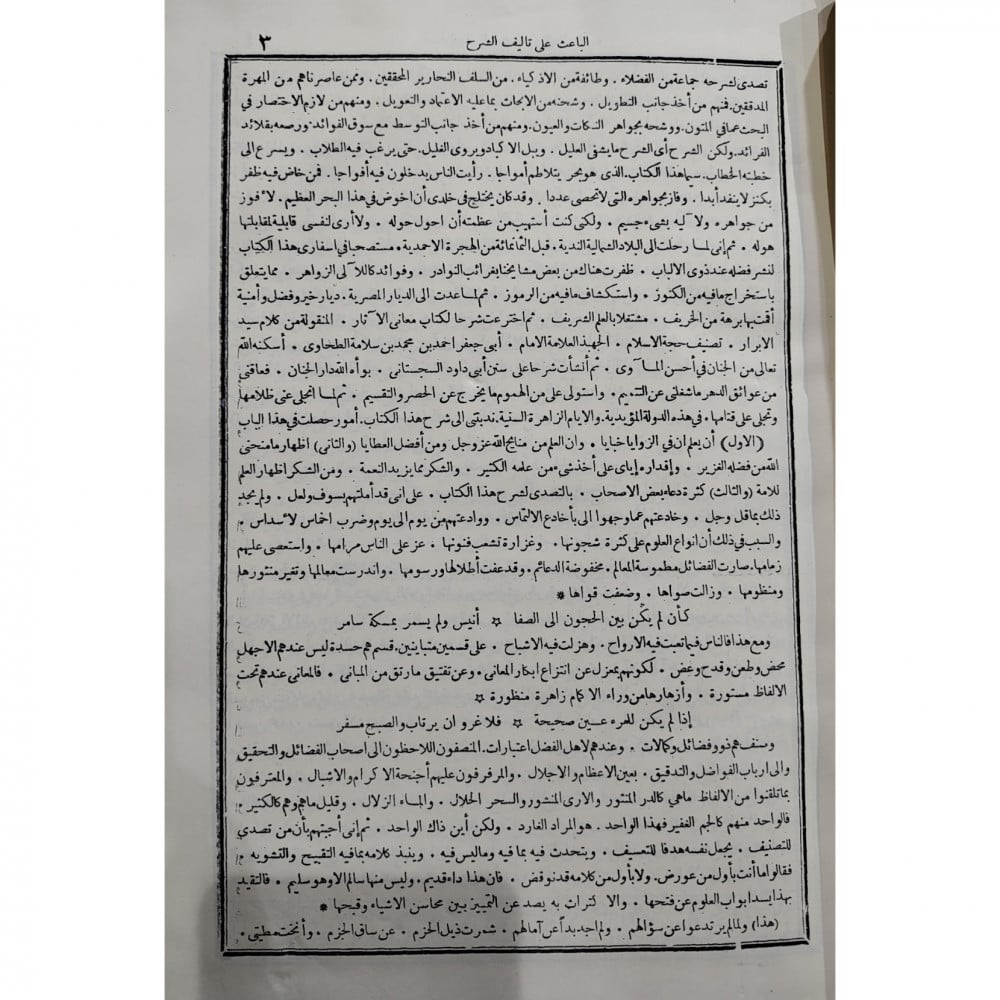 الباعث على تاليف الشرح ٣
تصدى لشرحه جماعة من الفضلاء . وطائفة من الاذكياء . من السلف النحارير المحققين . وممن عاصرناهم من المهرة
المدققين . فمنهم من أخذ جانب التطويل . وشحنه من الابحاث بما عليه الاعتماد والتعويل . ومنهم من لازم الاختصار في
البحث عما في المتون . ووشحه بجواهر النكات والعيون . ومنهم من أخذ جانب التوسط مع سوق الفوائد . ورصعه بقلائد
الفرائد . ولكن الشرح أى الشرح ما يشفى العليل . ويبل الاكباد ويروى الغليل . حتى يرغب فيه الطلاب . ويسرع الى
خطبته الخطاب . سيما هذا الكتاب . الذى هو بحر يتلاطم أمواجا . رأيت الناس يدخلون فيه أفواجا . فمن خاض فيه ظفر
بكنز لا ينفد أبدا . وفاز بجواهره التى لا تحصى عددا . وقد كان يختلج فى خلدى أن اخوض فى هذا البحر العظيم . لا فوز
من جواهره ولآليه بشىء جسيم . ولكنى كنت أستهيب من عظمته أن احول حوله . ولا أرى لنفسى قابلية لمقابلتها
هوله . ثم إنى لما رحلت الى البلاد الشمالية الندية . قبل الثمانمائة من الهجرة الاحمدية . مستصحبا فى اسفارى هذا الكتاب
لنشر فضله عند ذوى الالباب . ظفرت هناك من بعض مشايخنا بغرائب النوادر . وفوائد كاللآلى الزواهر . مما يتعلق
باستخراج ما فيه من الكنوز . واستكشاف ما فيه من الرموز . ثم لما عدت الى الديار المصرية . ديار خير وفضل وأمنية
أقمت بها برهة من الخريف . مشتغلا بالعلم الشريف . ثم اخترعت شرحا لكتاب معانى الآثار . المنقولة من كلام سيد
الابرار . تصنيف حجة الاسلام . الجهبذ العلامة الامام . أبى جعفر احمد بن محمد بن سلامة الطحاوى . أسكنه الله
تعالى من الجنان فى أحسن المآوى . ثم أنشأت شرحا على سنن أبى داود السجستانى . بوأه الله دار الجنان . فعاقنى
من عوائق الدهر ما شغلنى عن التتميم . واستولى على من الهموم ما يخرج عن الحصر والتقسيم . ثم لما انجلى عنى ظلامها
وتجلى على قتامها . فى هذه الدولة المؤيدية . والايام الزاهرة السنية . ندبتنى الى شرح هذا الكتاب . أمور حصلت فى هذا الباب
(الاول) أن يعلم ان فى الزوايا خبايا . وان العلم من منايح الله عز وجل ومن أفضل العطايا (والثانى) اظهار ما منحنى
الله من فضله الغزير . وإقداره إياى على أخذ شىء من علمه الكثير . والشكر مما يزيد النعمة . ومن الشكر اظهار العلم
للامة (والثالث) كثرة دعاء بعض الاصحاب . بالتصدى لشرح هذا الكتاب . على انى قد أملتهم بسوف ولعل . ولم يجد
ذلك بما قل وجل . وخادعتهم عما وجهوا الى بأخادع الالتماس . ووادعتهم من يوم الى يوم وضرب اخماس لأسداس .
والسبب فى ذلك أن انواع العلوم على كثرة شجونها . وغزارة تشعب فنونها . عز على الناس مرامها . واستعصى عليهم
زمامها . صارت الفضائل مطموسة المعالم . مخفوضة الدعائم . وقد عفت أطلالها ورسومها . واندرست معالمها وتغير منثورها
ومنظومها . وزالت صواها . وضعفت قواها *
كأن لم يكن بين الحجون الى الصفا ✩ أنيس ولم يسمر بمكة سامر
ومع هذا فالناس فيما تعبت فيه الارواح . وهزلت فيه الاشباح . على قسمين متباينين . قسم هم حسدة ليس عندهم الا جهل
محض وطعن وقدح وعض . لكونهم بمعزل عن انتزاع ابكار المعانى . وعن تفتيق ما رتق من المبانى . فالمعانى عندهم تحت
الالفاظ مستورة . وأزهارها من وراء الاكمام زاهرة منظورة ✩
إذا لم يكن للمرء عين صحيحة ✩ فلا غرو ان يرتاب والصبح مسفر
وصنف هم ذوو فضائل وكمالات . وعندهم لاهل الفضل اعتبارات . المنصفون اللاحظون الى اصحاب الفضائل والتحقيق
والى ارباب الفواضل والتدقيق . بعين الاعظام والاجلال . والمرفرفون عليهم أجنحة الاكرام والاشبال . والمعترفون
بما تلقنوا من الالفاظ ما هى كالدر المنثور والارى المنشور والسحر الحلال . والماء الزلال . وقليل ما هم وهم كالكثير .
فالواحد منهم كالجم الغفير فهذا الواحد . هو المراد الغارد . ولكن أين ذاك الواحد . ثم إنى أجبتهم بأن من تصدى
للتصنيف . يجعل نفسه هدفا للتعسيف . ويتحدث فيه بما فيه وما ليس فيه . وينبذ كلامه بما فيه التقبيح والتشويه .
فقالوا ما أنت بأول من عورض . ولا بأول من كلامه قد نوقض . فان هذا داء قديم . وليس منها سالم الا وهو سليم . فالتقيد
بهذا يسد ابواب العلوم عن فتحها . والاكتراث به يصد عن التمييز بين محاسن الاشياء وقبحها *
(هذا) ولما لم يرتدعوا عن سؤالهم . ولم اجد بدا عن آمالهم . شمرت ذيل الحزم . عن ساق الجزم . وأنخت مطيتى .